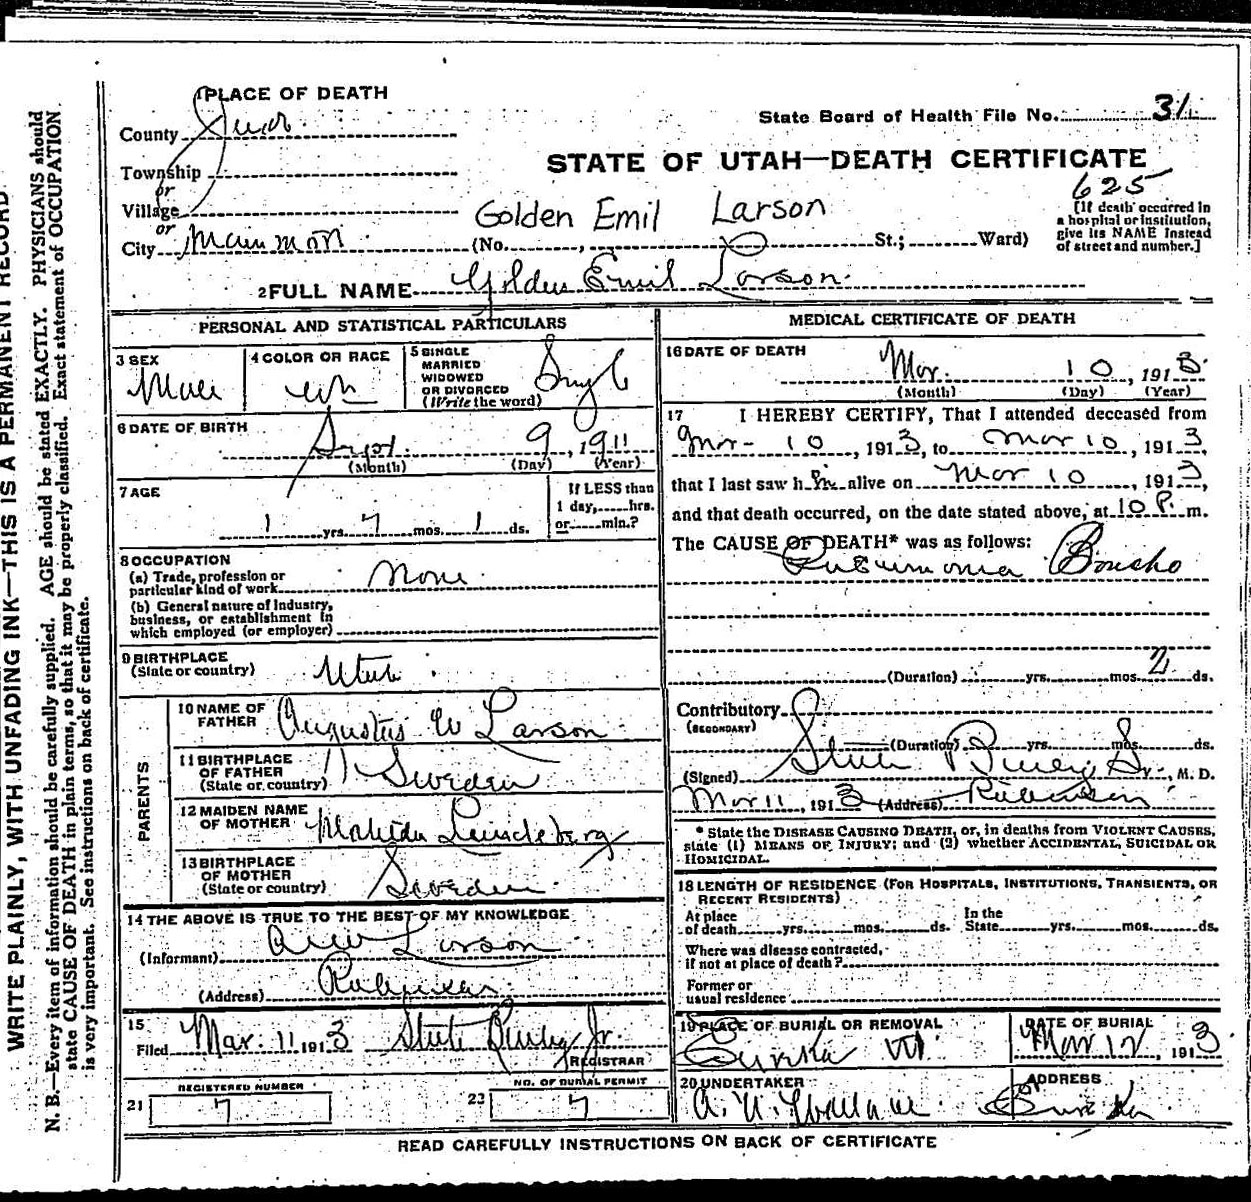 WRITE PLAINLY, WITH UNFADING INK—THIS IS A PERMANENT RECORD
N. B.—Every item of information should be carefully supplied. AGE should be stated EXACTLY. PHYSICIANS should
state CAUSE OF DEATH in plain terms, so that it may be properly classified. Exact statement of OCCUPATION
is very important. See instructions on back of certificate.
1 PLACE OF DEATH
County Juab
State Board of Health File No. 31
STATE OF UTAH—DEATH CERTIFICATE
Township
or
Village
or
City Mammoth (No. , St.; Ward)
Golden Emil Larson
625
[If death occurred in
a hospital or institution,
give its NAME instead
of street and number.]
2 FULL NAME Golden Emil Larson
PERSONAL AND STATISTICAL PARTICULARS
3 SEX
Male
4 COLOR OR RACE
Wh
5 SINGLE
MARRIED
WIDOWED
OR DIVORCED
(Write the word)
Single
6 DATE OF BIRTH
Sept. 9, 1911
(Month) (Day) (Year)
7 AGE
1 yrs. 7 mos. 1 ds.
If LESS than
1 day, hrs.
or min.?
8 OCCUPATION
(a) Trade, profession or
particular kind of work None
(b) General nature of Industry,
business, or establishment in
which employed (or employer)
9 BIRTHPLACE
(State or country) Utah
PARENTS
10 NAME OF
FATHER Augustus W Larson
11 BIRTHPLACE
OF FATHER
(State or country) Sweden
12 MAIDEN NAME
OF MOTHER
13 BIRTHPLACE
OF MOTHER
(State or country) Sweden
14 THE ABOVE IS TRUE TO THE BEST OF MY KNOWLEDGE
(Informant) Larson
(Address) Robinson
15
Filed Mar. 11 1913 Steele Bailey Jr.
REGISTRAR
REGISTERED NUMBER
21 7
NO. OF BURIAL PERMIT
22 7
MEDICAL CERTIFICATE OF DEATH
16 DATE OF DEATH
Mar. 10, 1913
(Month) (Day) (Year)
17 I HEREBY CERTIFY, That I attended deceased from
Mar- 10, 1913, to Mar 10, 1913,
that I last saw him alive on Mar 10, 1913,
and that death occurred, on the date stated above, at 10 P. m.
The CAUSE OF DEATH* was as follows:
Pneumonia Broncho
(Duration) yrs. mos. 2 ds.
Contributory
(SECONDARY)
(Duration) yrs. mos. ds.
(Signed) Steele Bailey Jr., M. D.
Mar 11, 1913 (Address) Robinson
* State the DISEASE CAUSING DEATH, or, in deaths from VIOLENT CAUSES,
state (1) MEANS OF INJURY; and (2) whether ACCIDENTAL, SUICIDAL OR
HOMICIDAL.
18 LENGTH OF RESIDENCE (FOR HOSPITALS, INSTITUTIONS, TRANSIENTS, OR
RECENT RESIDENTS)
At place
of death yrs. mos. ds.
In the
State yrs. mos. ds.
Where was disease contracted,
if not at place of death?
Former or
usual residence
19 PLACE OF BURIAL OR REMOVAL
Eureka Ut.
DATE OF BURIAL
Mar 12, 1913
20 UNDERTAKER
A. N. Wallace
ADDRESS
Eureka
READ CAREFULLY INSTRUCTIONS ON BACK OF CERTIFICATE